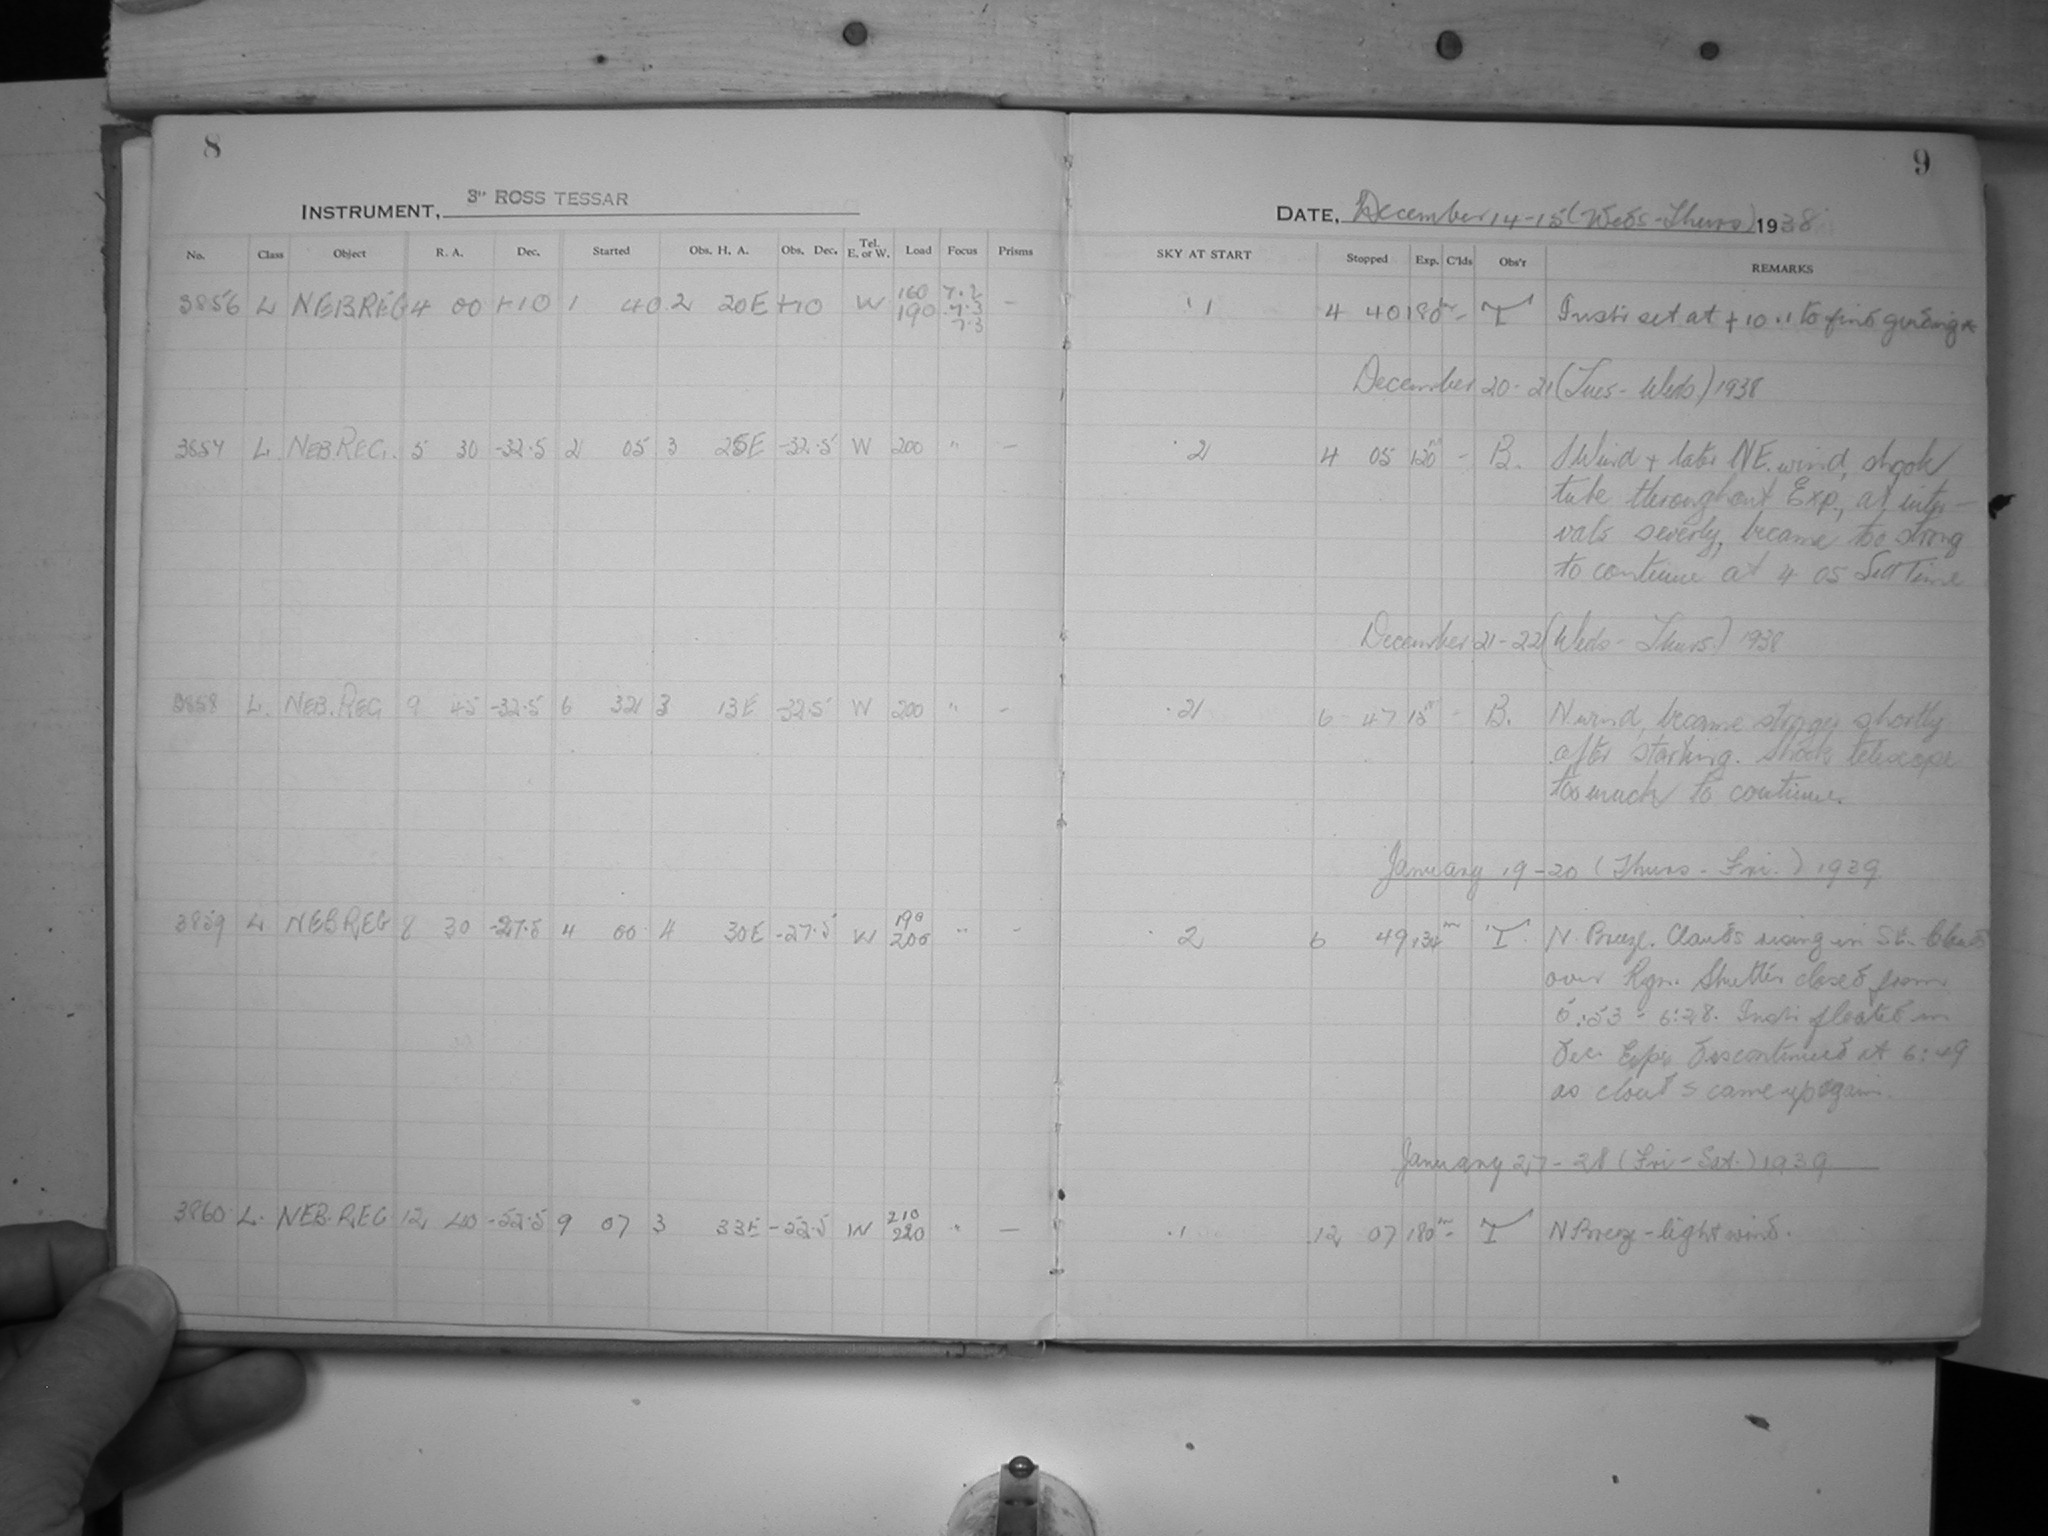 8
INSTRUMENT, 3" ROSS TESSAR
No. Class Object R. A. Dec. Started Obs. H. A. Obs. Dec. Tel. E. or W. Load Focus Prisms
3856 L NEB REG 4 00 +10 1 40 2 20E +10 W 160 190 7.2 7.3 7.3 —
3857 L NEB REG. 5 30 -32.5 2 05 3 25E -32.5 W 200 " —
3858 L. NEB. REG 9 45 -32.5 6 32 3 13E -32.5 W 200 " —
3859 L NEB REG 8 30 -27.5 4 00 4 30E -27.5 W 190 200 " —
3860 L. NEB. REG 12 40 -52.5 9 07 3 33E -52.5 W 210 220 " —
9
DATE, December 14-15 (Weds-Thurs) 1938
SKY AT START Stopped Exp. C'lds Obs'r REMARKS
1 4 40 180m - T Instr set at +10.1 to find guiding *
December 20-21 (Tues-Weds) 1938
2 4 05 120m - B. S Wind + later NE. wind, shook
tube throughout Exp., at inter-
vals severly, became too strong
to continue at 4 05 Sid Time
December 21-22 (Weds-Thurs.) 1938
2 6 47 15m - B. N. wind, became stronger shortly
after starting. Shook telescope
too much to continue.
January 19-20 (Thurs-Fri.) 1939
2 6 49 134m T. N. Breeze. Clouds rising in St. Clouds
over Rgn. Shutter closed from
5:53 - 6:28. Instr floated in
Dec. Exp. discontinued at 6:49
as clouds came up again.
January 27-28 (Fri-Sat.) 1939
.1 12 07 180m - T N Breeze - light wind.